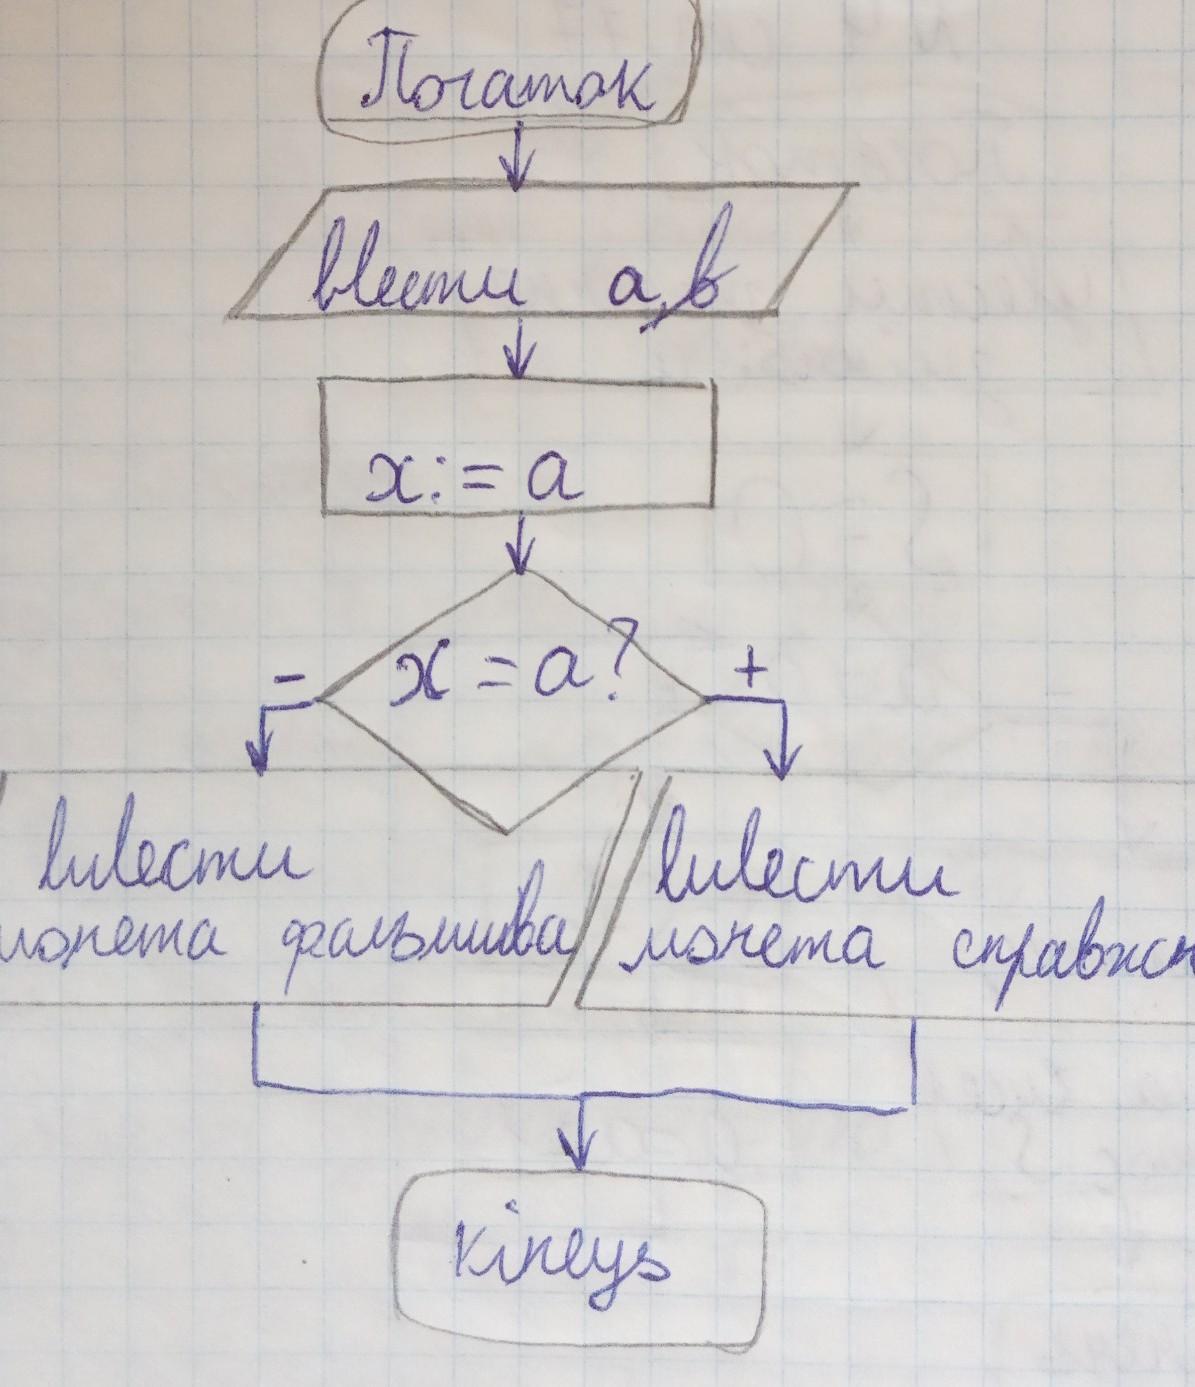 Початок
ввести а,в
x:= a
x = a?
- +
вивести
монета фальшива
вивести
монета справжн
кінець